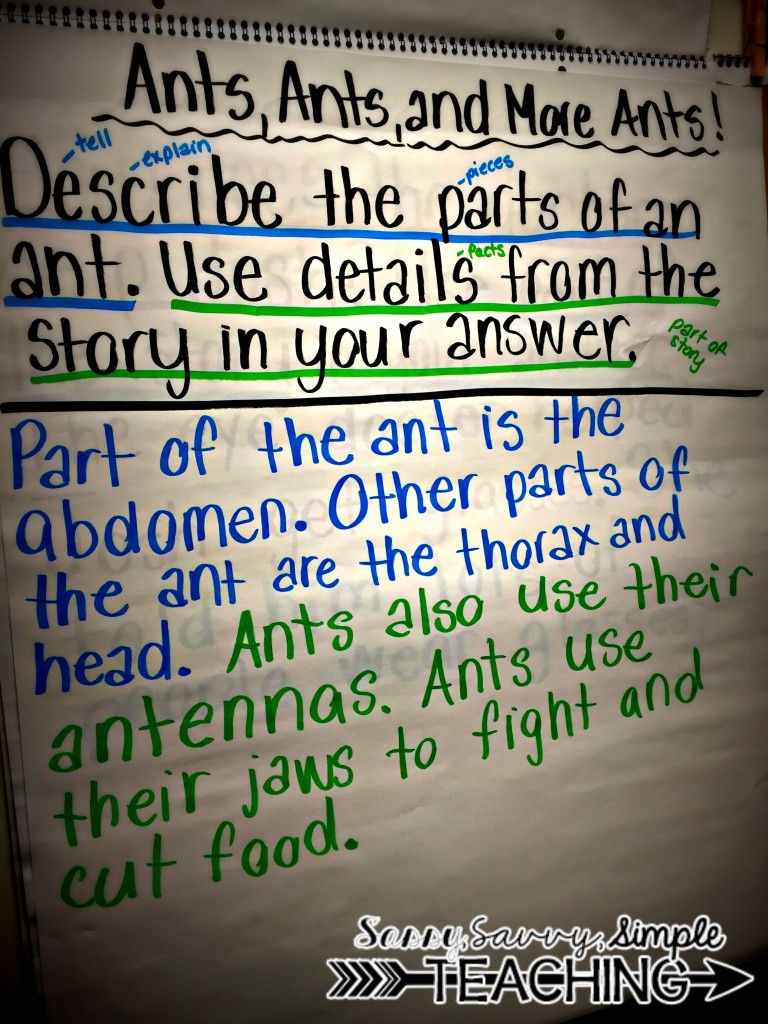 Ants, Ants, and More Ants!
-tell
-explain
-pieces
Describe the parts of an
-facts
ant. Use details from the
story in your answer.
part of
story
Part of the ant is the
abdomen. Other parts of
the ant are the thorax and
head. Ants also use their
antennas. Ants use
their jaws to fight and
cut food.
Sassy, Savvy, Simple
TEACHING